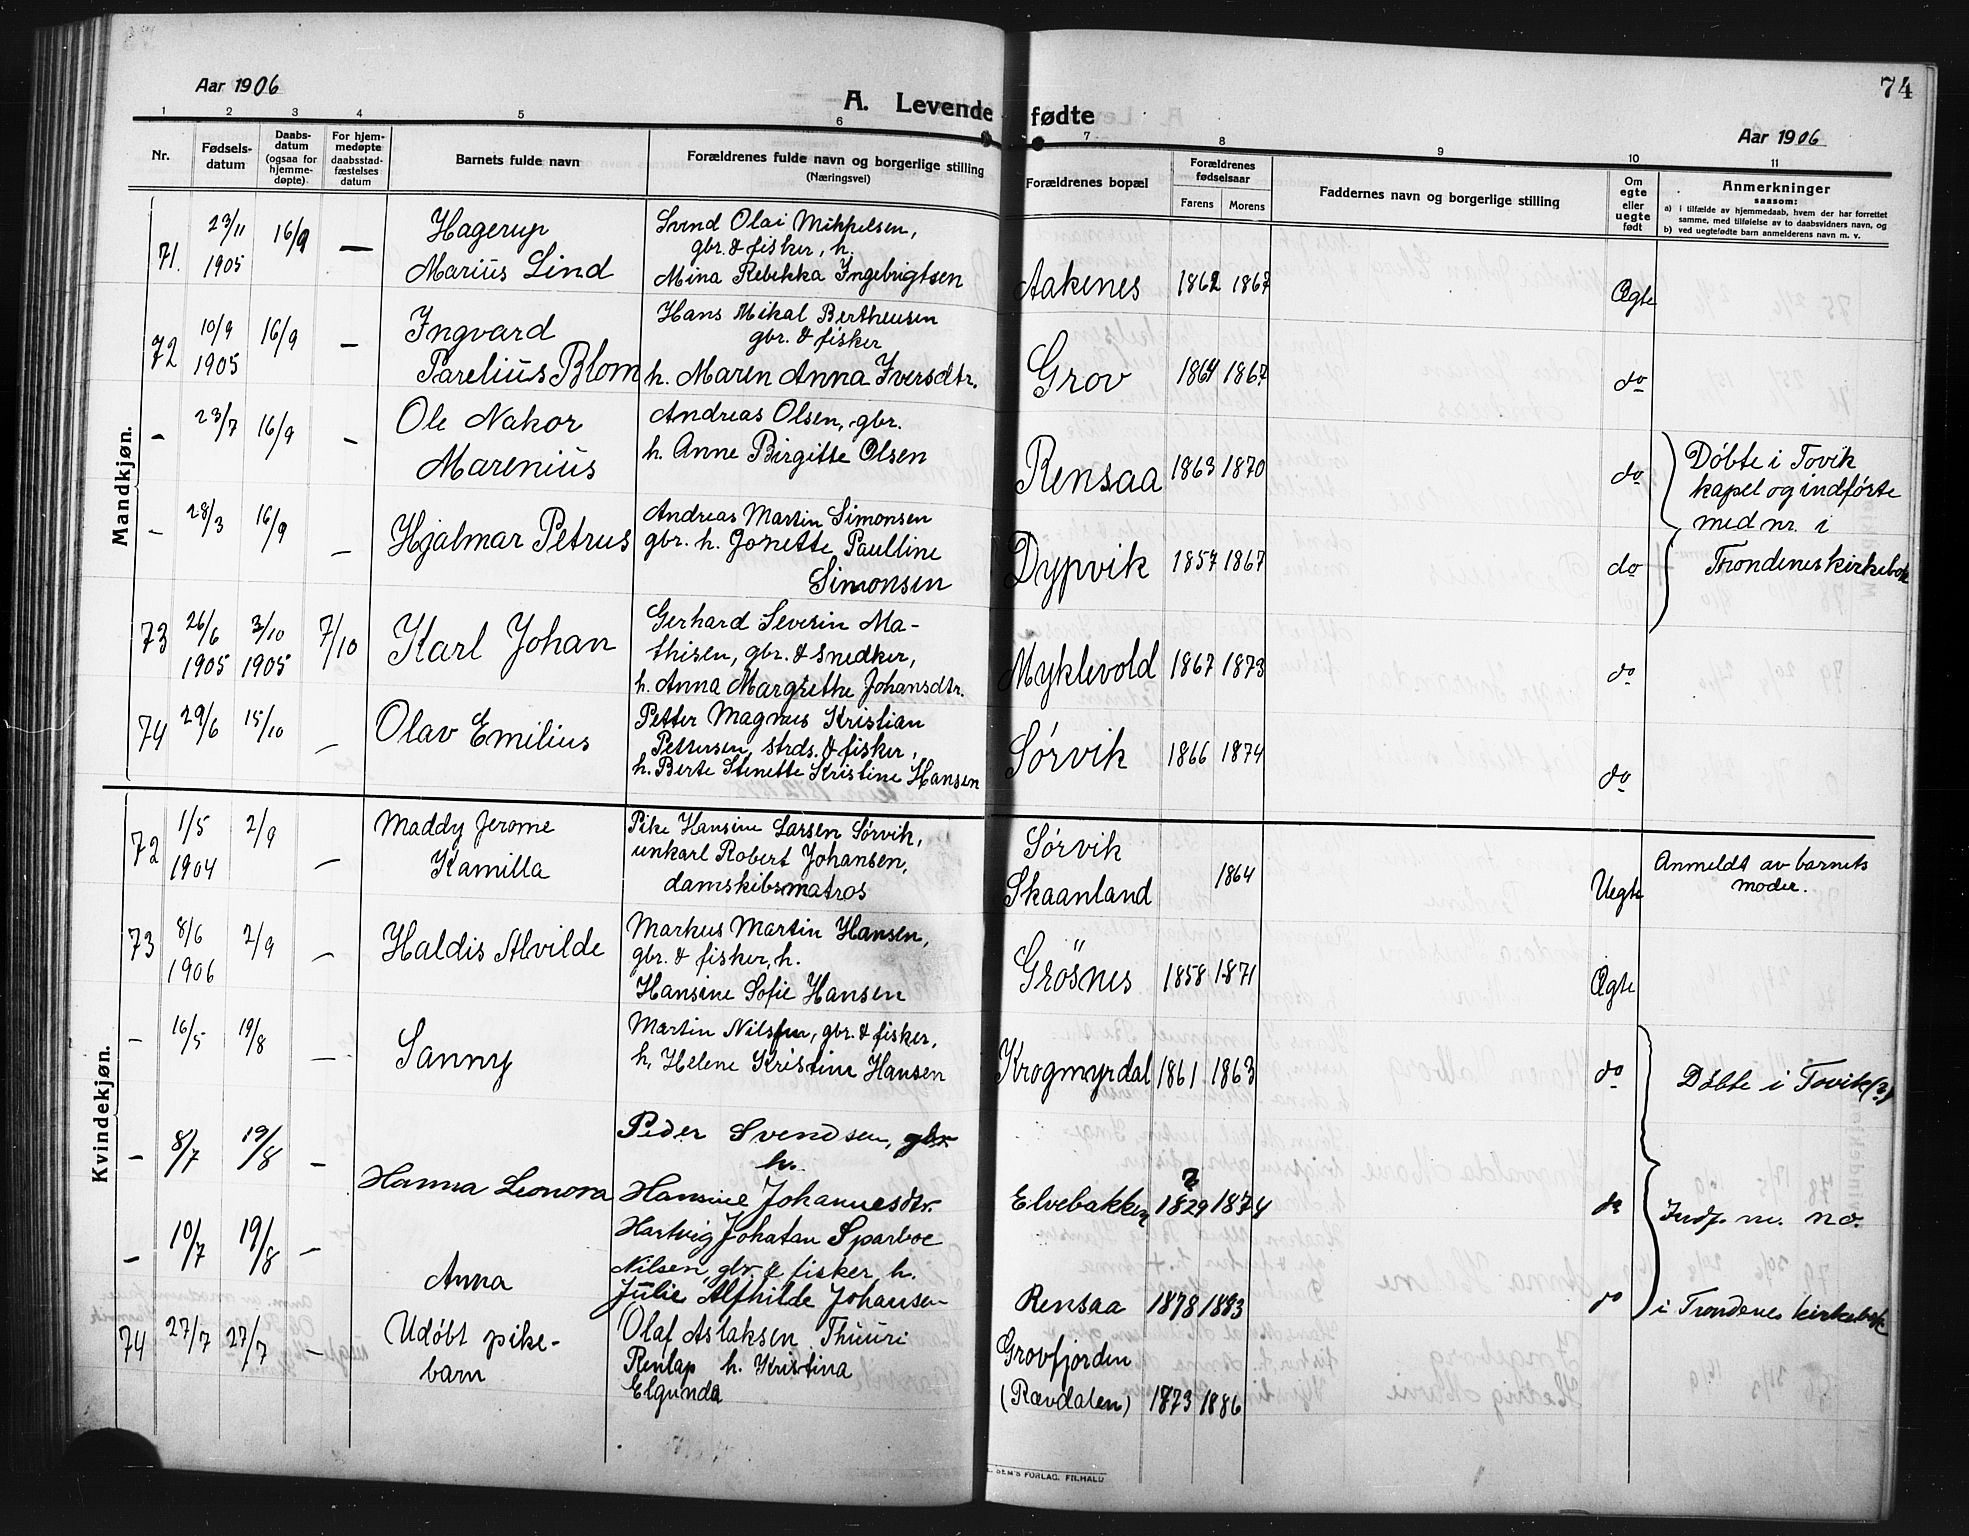 74
Aar 1906
A. Levende fødte
Aar 1906
1 2 3 4 5 6 7 8 9 10 11
Nr.
Fødsels-
datum
Daabs-
datum
(ogsaa for
hjemme-
døpte)
For hjem-
medøpte
daabsstad-
fæstelses
datum
Barnets fulde navn
Forældrenes fulde navn og borgerlige stilling
(Næringsvei)
Forældrenes bopæl
Forældrenes
fødselsaar
Farens Morens
Faddernes navn og borgerlige stilling
Om
egte
eller
uegte
født
Anmerkninger
saasom:
a) i tilfælde av hjemmedaab, hvem der har forrettet
samme, med tilføielse av to daabsvidners navn, og
b) ved uegtefødte barn anmelderens navn m. v.
Mandkjøn.
71. 23/11 1905 16/9 —
Hagerup
Marius Lind
Svend Olai Mikkelsen,
gbr. & fisker, h.
Mina Rebekka Ingebrigtsen
Aakenes 1862 1867 Ægte
72 10/9 1905 16/9 —
Ingvard
Parelius Blom
Hans Mikal Bertheusen
gbr. & fisker
h. Maren Anna Iversdtr.
Grov 1864 1867 do
— 23/7 16/9 —
Ole Nakor
Marenius
Andreas Olsen, gbr.
h. Anne Birgitte Olsen
Rensaa 1863 1870 do
Døbte i Tovik
kapel og indførte
med nr. i
Trondenes kirkebok
— 28/3 16/9 —
Hjalmar Petrus
Andreas Martin Simonsen
gbr. h. Jonette Paulline
Simonsen
Dypvik 1857 1867 do
73 26/6 1905 3/10 1905 7/10
Karl Johan
Gerhard Severin Ma-
thisen, gbr. & snedker,
h. Anna Margrethe Johansdtr.
Myklevold 1867 1873 do
74 29/6 15/10 —
Olav Emilius
Petter Magnus Kristian
Pettersen, strds. & fisker,
h. Berte Stenette Kristine Hansen
Sørvik 1866 1874 do
Kvindekjøn.
72 1/5 1904 2/9 —
Maddy Jerome
Kamilla
Pike Hansine Larsen Sørvik,
unkarl Robert Johansen,
damskibsmatros
Sørvik
Skaanland 1864 Uegte
Anmeldt av barnets
moder.
73 8/6 1906 2/9 —
Haldis Alvilde
Markus Martin Hansen,
gbr. & fisker, h.
Hansine Sofie Hansen
Grøsnes 1858 1871 Ægte
— 16/5 19/8 —
Sanny
Martin Nilsen, gbr. & fisker,
h. Helene Kristine Hansen
Krogmyrdal 1861 1863 do
Døbte i Tovik
— 8/7 19/8 —
Hanna Leonora
Peder Svendsen, gbr.
h.
Hansine Johannesdtr.
Elvebakken ? 1829 1874 do
Indf. m. no.
— 10/7 19/8 —
Anna
Hartvig Johatan Sparboe
Nilsen, gbr & fisker, h.
Julie Alfhilde Johansen
Rensaa 1878 1883 do
i Trondenes kirkebok
74 27/7 27/7 —
Udøbt pike-
barn
Olaf Aslaksen Thuuri
Renlap h. Kristina
Elgunda
Grovfjorden
(Rævdalen) 1873 1886
SEM'S FORLAG. FR.HALD